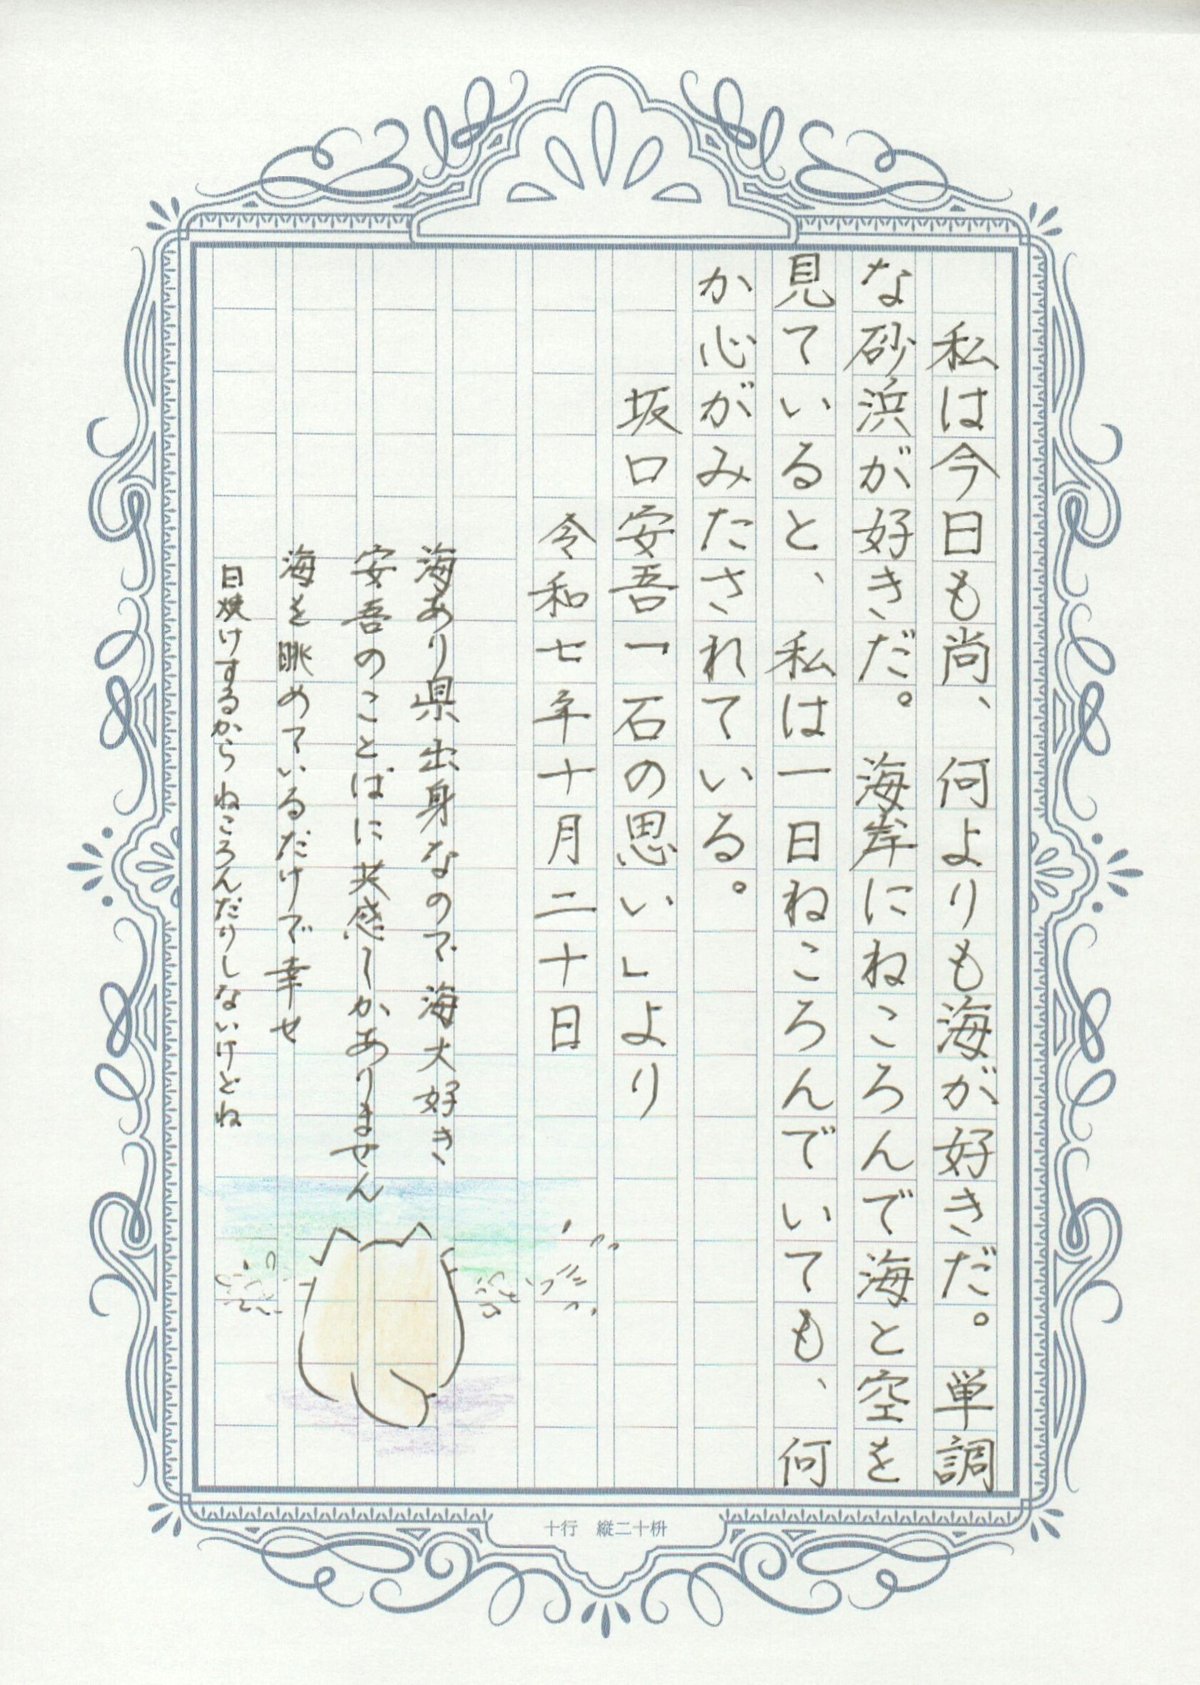 私は今日も尚、何よりも海が好きだ。単調
な砂浜が好きだ。海岸にねころんで海と空を
見ていると、私は一日ねころんでいても、何
か心がみたされている。
坂口安吾「石の思い」より
令和七年十月二十日
海あり県出身なので海大好き
安吾のことばに共感しかありません
海を眺めているだけで幸せ
日焼けするからねころんだりしないけどね
十行 縦二十枡